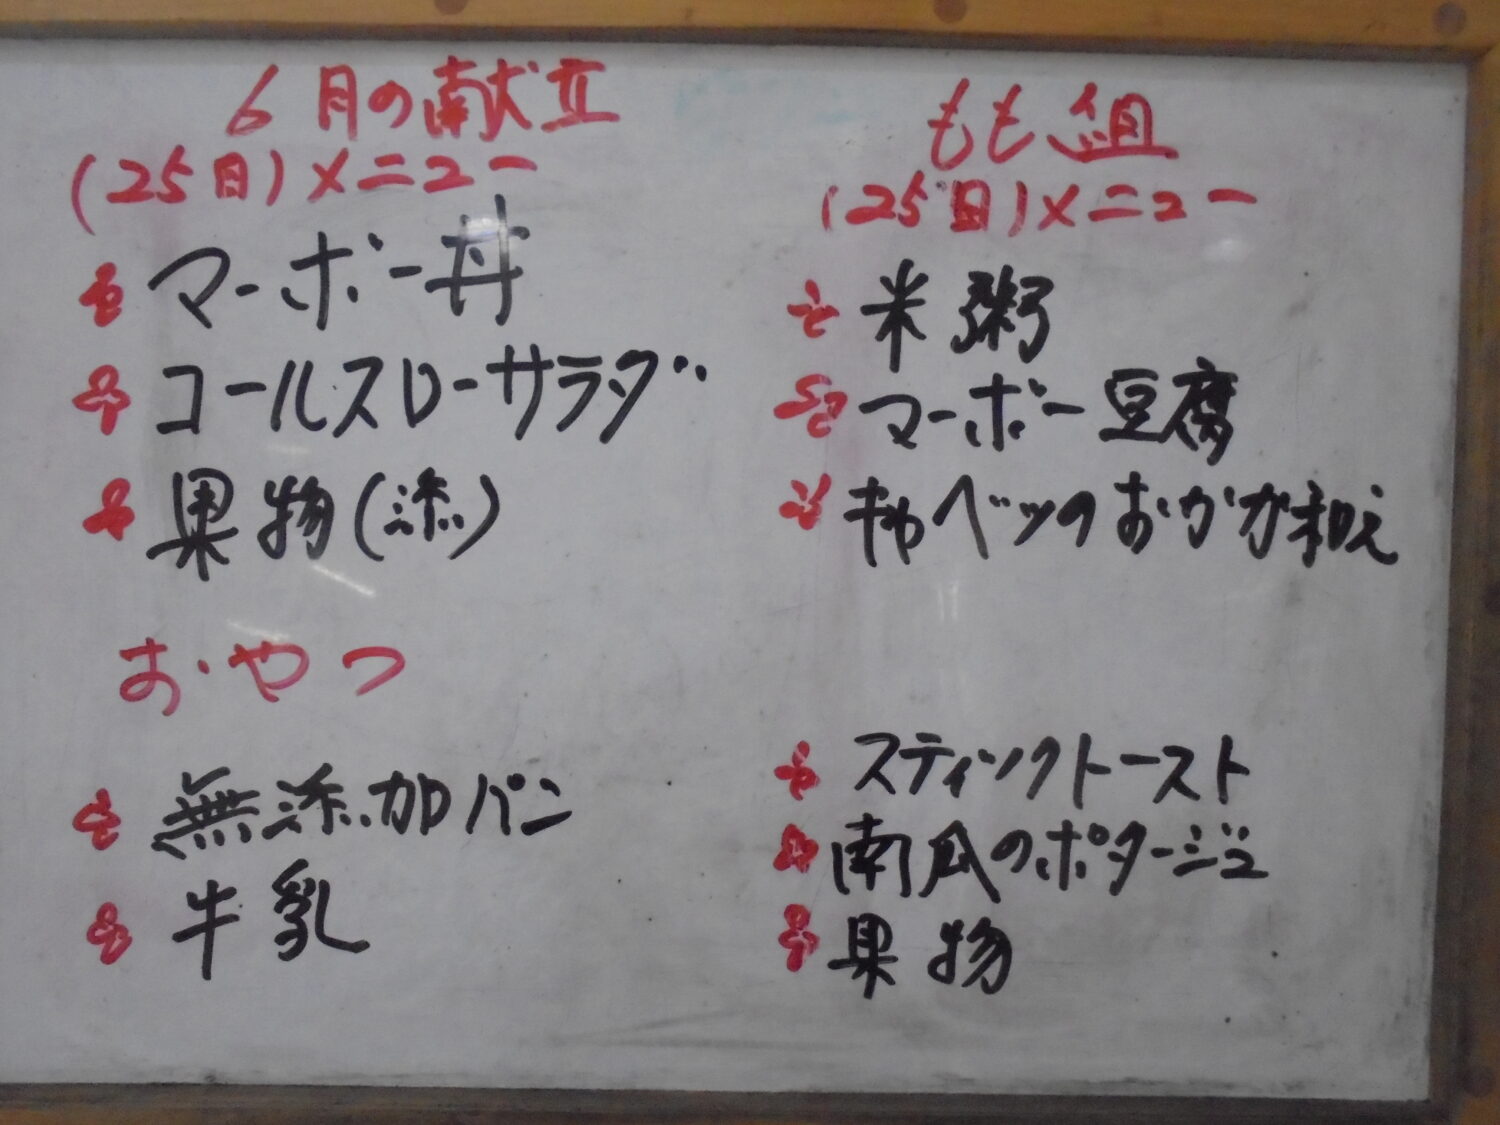 6月の献立
(25日)メニュー
マーボー丼
コールスローサラダ
果物(添)
おやつ
無添加パン
牛乳
もも組
(25日)メニュー
米粥
マーボー豆腐
キャベツのおかか和え
スティックトースト
南瓜のポタージュ
果物